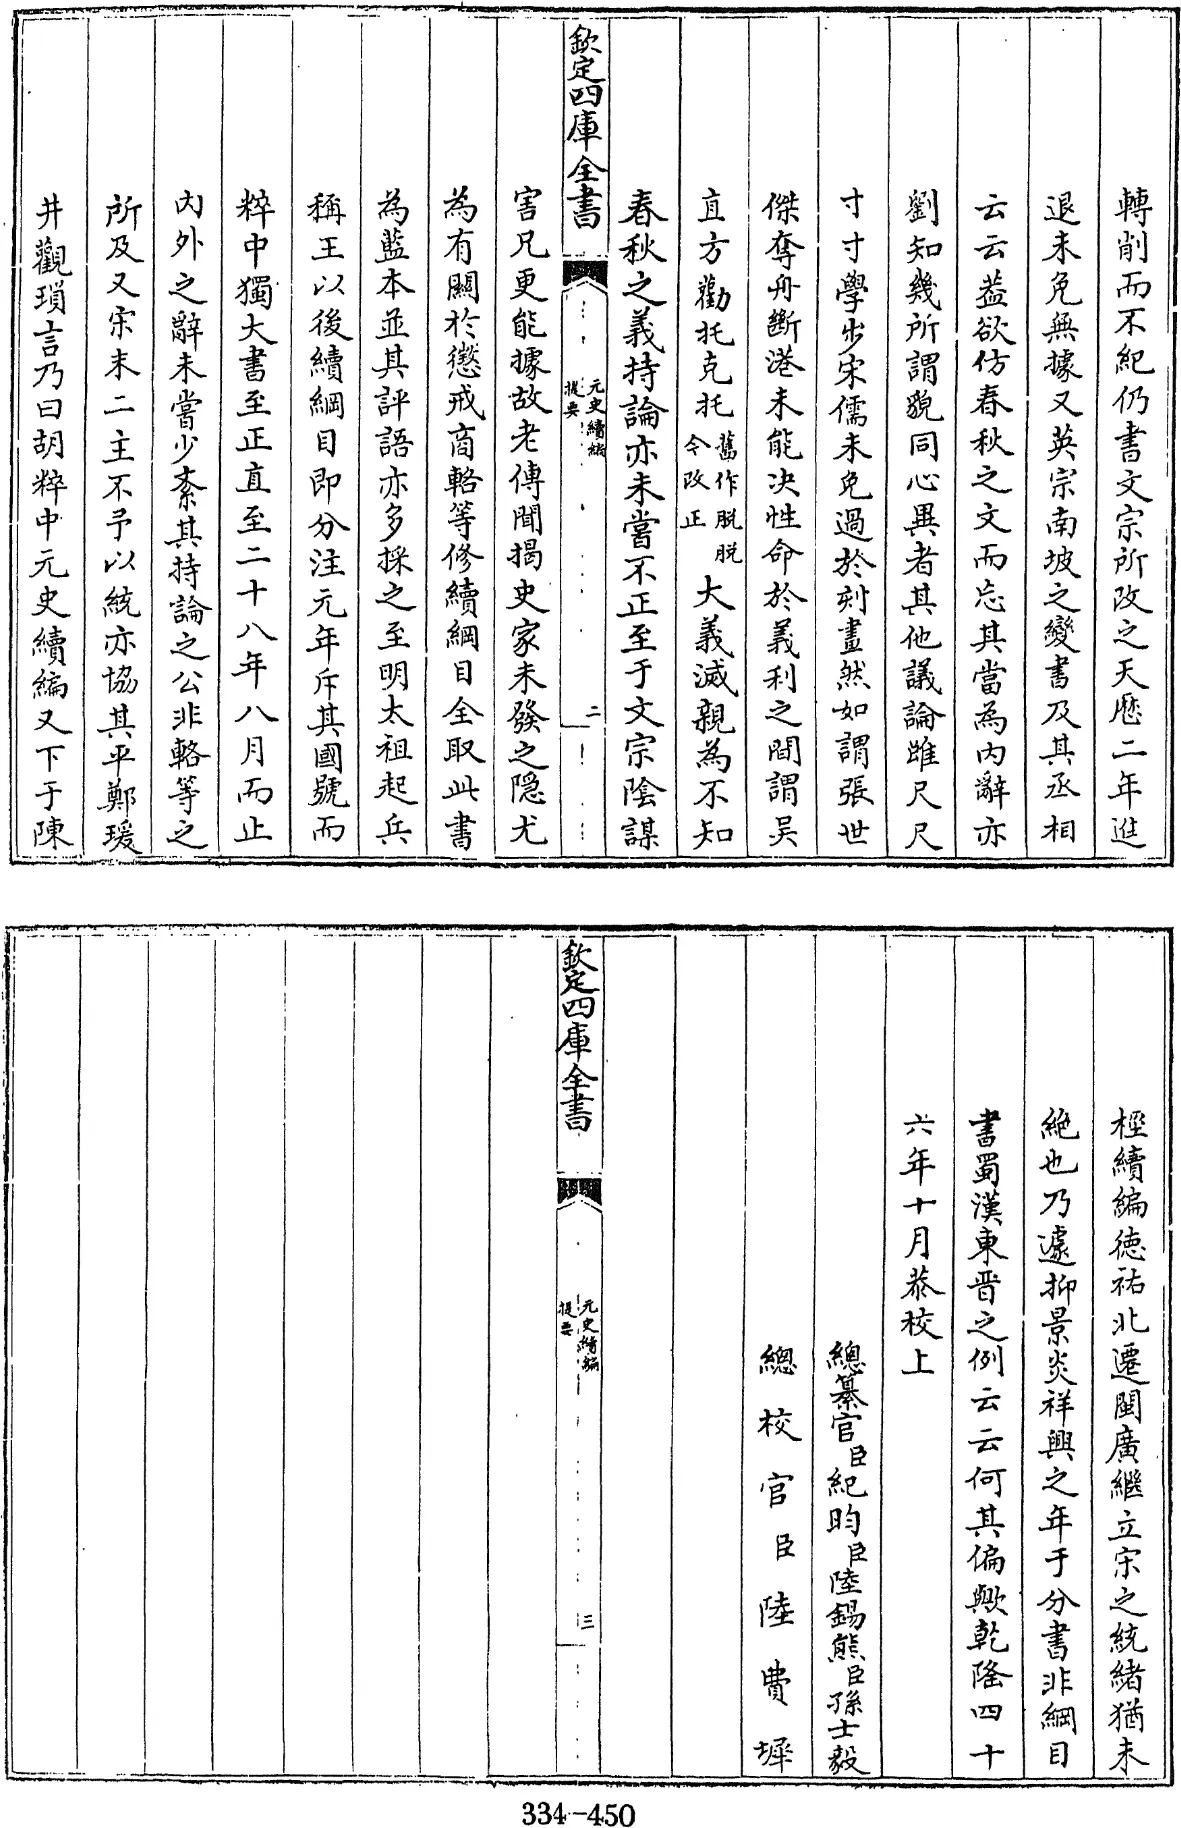 轉削而不紀仍書文宗所改之天厯二年進
退未免無據又英宗南坡之變書及其丞相
云云葢欲仿春秋之文而忘其當為内辭亦
劉知幾所謂貌同心異者其他議論雖尺尺
寸寸學步宋儒未免過於刻畫然如謂張世
傑奪舟斷港未能决性命於義利之間謂吳
直方勸托克托舊作脱脱今改正大義滅親為不知
欽定四庫全書
元史續編
提要
二
春秋之義持論亦未嘗不正至于文宗隂謀
害兄更能據故老傳聞揭史家未發之隠尤
為有關於懲戒商輅等修續綱目全取此書
為藍本並其評語亦多採之至明太祖起兵
稱王以後續綱目即分注元年斥其國號而
粹中獨大書至正直至二十八年八月而止
内外之辭未嘗少紊其持論之公非輅等之
所及又宋末二主不予以統亦協其平鄭瑗
井觀瑣言乃曰胡粹中元史續編又下于陳
桱續編徳祐北遷閩廣繼立宋之統緒猶未
絶也乃遽抑景炎祥興之年于分書非綱目
書蜀漢東晋之例云云何其偏歟乾隆四十
六年十月恭校上
總纂官臣紀昀臣陸錫熊臣孫士毅
總校官臣陸費墀
欽定四庫全書
元史續編
提要
三
334-450